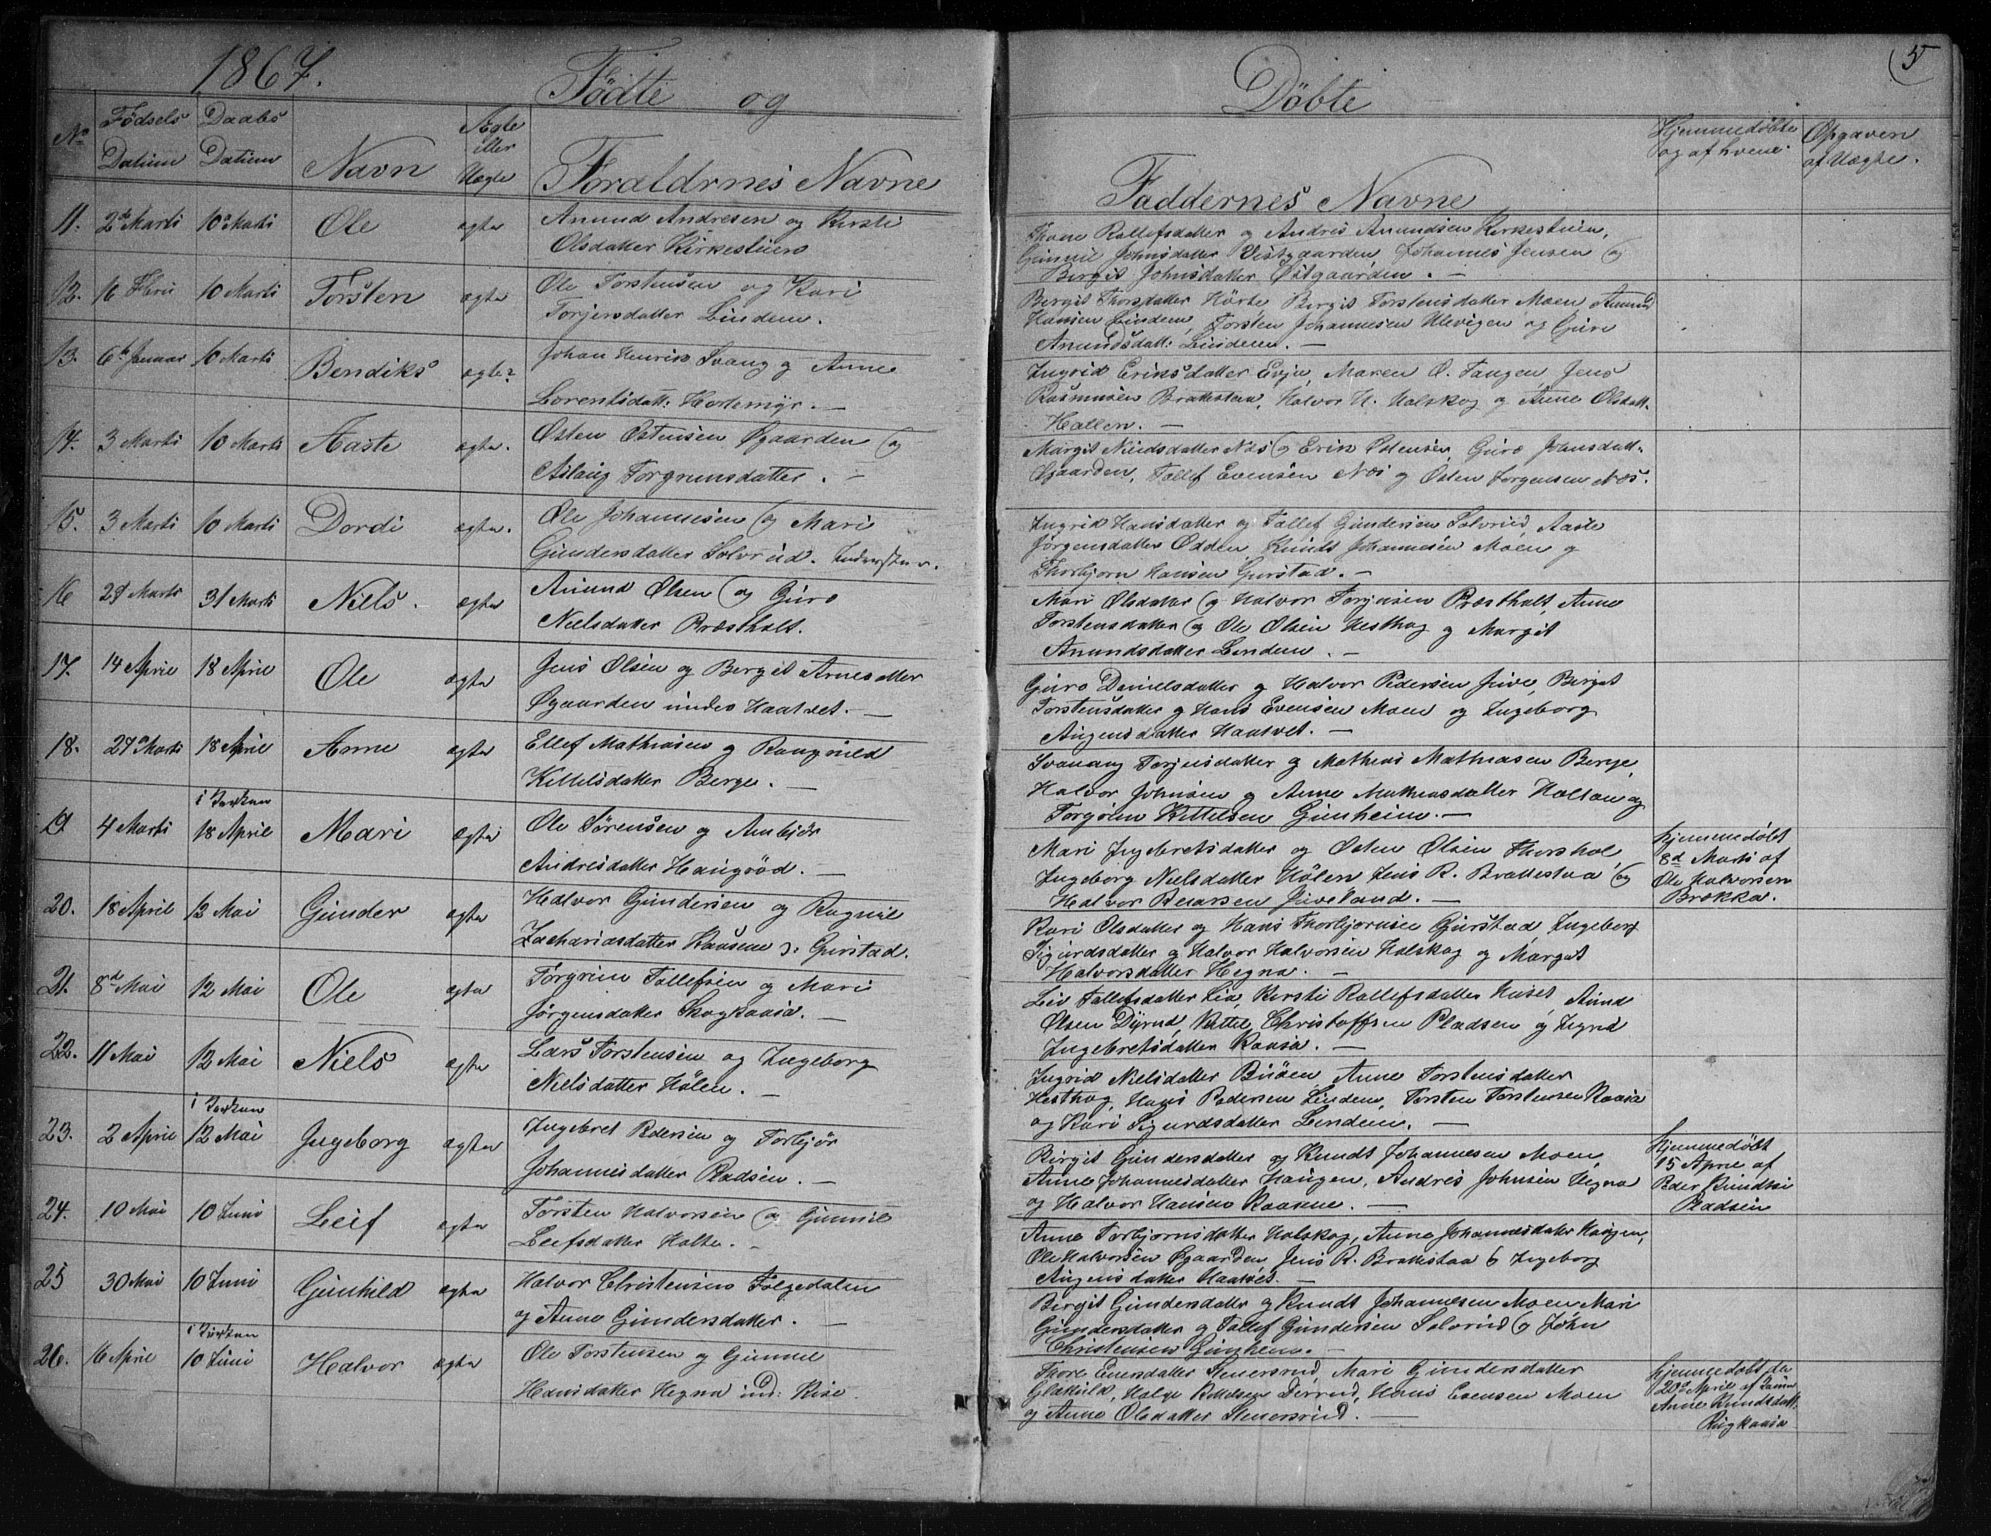 1867.
Fødte og
Døbte
5
No
Fødsels Datum
Daabs Datum
Navn
Ægte eller Uægte
Forældrnes Navne
Faddernes Navne
Hjemmedøbte og af hvem.
Opgaven af Uægte.
11. 2d Marti 10d Marti Ole ægte Anund Andresen og Kirsti
Olsdatter Kirkestuen
Thone Rollefsdatter og Andris Anundsen Kirkestuen,
Gunnil Johnsdatter Vestgaarden, Johannes Jensen og
Bergit Johnsdatter Østgaarden. —
12. 16 Febru 10 Marti Torsten ægte Ole Torstensen og Kari
Torjersdatter Lindem.
Bergit Thorsdatter Hørte, Bergit Torstensdatter Moen, Anund
Hansen Lindem, Torsten Johannesen Ulevigen og Guro
Anundsdatt: Lindem. —
13. 6te Januar 10 Marti Bendiks ægte? Johan Henrik Svang og Anne
Lorentsdatt: Hortemyr. —
Ingrid Eriksdatter Evju, Maren O. Tangen, Jens
Rasmusen Brækstaa, Halvor H. Halskog og Anne Olsdatt.
Hallen. —
14. 3 Marti 10 Marti Aaste ægte. Østen Østensen Øgaarden og
Aslaug Torgrimsdatter. —
Margit Nirisdatter Næs og Erik Østensen, Guro Jonsdatt.
Øgaarden, Tallef Evensen Næs og Østen Jørgensen Næs.
15. 3 Marti 10 Marti Dordi ægte. Ole Johannesen og Mari
Gundersdatter Solvrud. Inderster.
Ingrid Hansdatter og Tallef Gundersen Solvrud, Aaste
Jørgensdatter Odden, Knudt Johannesen Moen og
Thorbjørn Hansen Gurstad. —
16 29 Marts 31 Marti Niels. ægte Anund Olsen og Guro
Nielsdatter Præstholt.
Mari Olsdatter og Halvor Torjusen Præstholt, Anne
Torstensdatter og Ole Olsen Hesthag og Margit
Anundsdatter Lindem. —
17. 14 April 18 April Ole ægte Jens Olsen og Bergit Arnesdatter
Øgaarden under Haatvet. —
Guro Danielsdatter og Halvor Pedersen Juve, Birgit
Torstensdatter og Hans Evensen Moen og Ingeborg
Augensdatter Haatvet. —
18. 27 Marti 18 April Anne ægte Ellef Mathiasen og Raagnild
Kittelsdatter Berge. —
Svanaug Torjusdatter og Mathias Mathiasen Berge,
Halvor Johnsen og Anne Mathiasdatter Holtan og
Torgrim Kittelsen Gunheim. —
19 4 Marti i Kirken 18 April Mari ægte Ole Sørensen og Ambjør
Andresdatter Haugrød. —
Mari Ingebretsdatter og Østen Olsen Thorshol,
Ingeborg Nielsdatter Hølen, Jens R. Brækstaa og
Halvor Bærsen Juveland. —
Hjemmedøbt
8d Marti af
Ole Halvorsen
Brokka.
20. 18 April 12 Mai Gunder ægte Halvor Gundersen og Ragnil
Zachariasdatter Kaasene v. Gurstad.
Kari Olsdatter og Hans Thorbjørnsen Gurstad, Ingeborg
Sigurdsdatter og Halvor Halvorsen Halskog og Margit
Halvorsdatter Hegna. —
21. 8d Mai 12 Mai Ole ægte Torgrim Tallefsen og Mari
Jørgensdatter Skogkaasa. —
Liv Tallefsdatter Lia, Kirsti Rollefsdatter Huset, Aund
Olsen Dyrud, Kittel Christoffsen Pladsen og Ingrid
Ingebretsdatter Kaasa. —
22. 11 Mai 12 Mai Niels ægte Lars Torstensen og Ingeborg
Nielsdatter Hølen. —
Ingrid Nielsdatter Buøen, Anne Torstensdatter
Hesthag, Hans Pedersen Lindem, Torsten Torstensen Kaasa
og Kari Sigurdsdatter Lindem. —
23. 2 April i Kirken 12 Mai Ingeborg ægte Ingebret Pedersen og Torbjør
Johannesdatter Pladsen. —
Birgit Gundersdatter og Knudt Johannesen Moen,
Anne Johannesdatter Haugen, Andris Johnsen Hegna
og Halvor Hansen Kaasene. —
Hjemmedøbt
15 April af
Peder Knudtsen
Pladsen
24. 10 Mai 10 Juni Leif ægte Torsten Halvorsen og Gunnil
Leifsdatter Holte. —
Anne Torbjørnsdatter Halskog, Anne Johannesdatter Haugen,
Ole Halvorsen Øgaarden, Jens R. Brækstaa & Ingeborg
Augensdatter Haatvet. —
25 30 Mai 10 Juni Gunhild ægte Halvor Christensens Følgedalen
og Anne Gundersdatter. —
Birgit Gundersdatter og Knudt Johannesen Moen, Mari
Gundersdatter og Tallef Gundersen Solvrud og John
Christensen Gunheim. —
26. 16 April i Kirken 10 Juni Halvor ægte Ole Torstensen og Gunnil
Hansdatter Hegna und: Rise.
Thore Evensdatter Stenersrud, Mari Gundersdatter
Glækuld, Halge Kittelsen Dirrud, Hans Evensen Moen
og Anne Olsdatter Stenersrud. —
Hjemmedøbt den
20d April af
Anne Knudsdatt.
Rugkaasa